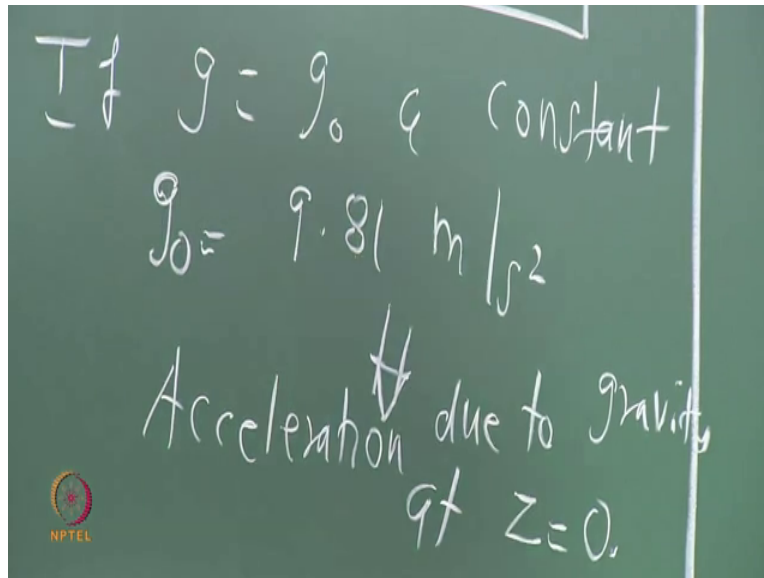 If g = g₀ a constant
g₀ = 9.81 m/s²
⇓
Acceleration due to gravity
at z=0.
NPTEL